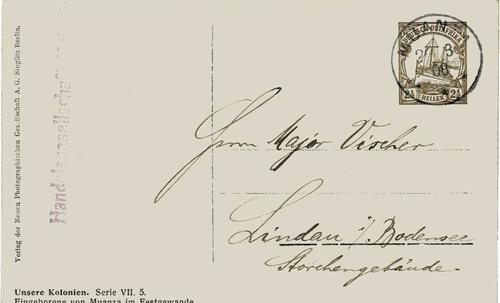 MUANZA
3
08
DEUTSCH-OSTAFRIKA
2½ HELLER 2½
Verlag der Neuen Photographischen Gesellschaft A. G. Steglitz-Berlin.
Handelsgesellschaft
Herrn Major Vischer
Lindau i/Bodensee
Storchengebäude.
Unsere Kolonien. Serie VII. 5.
Eingeborene von Muanza im Festgewande.